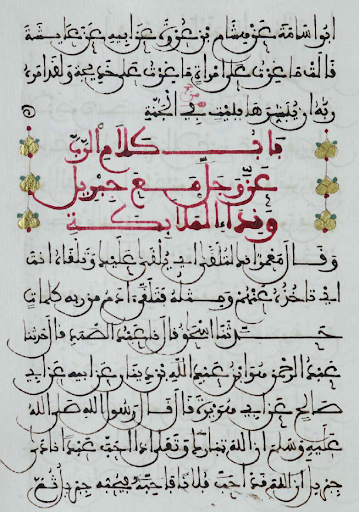 ابو اسامة عن هشام بن عروة عن ابيه عن عايشة
قالت ما غرت على امراة ما غرت على خديجة ولقد امره
ربه ان يبشرها ببيت في الجنة
باب كلام الرب
عز وجل مع جبريل
ونداء الملايكة
وقال معمر وانك لتلقى اي يلقى عليك وتلقاه انت
اي تاخذه عنهم ومثله فتلقى ادم من ربه كلمات
حدثنا اسحق قال نا عبد الصمد قال حدثنا
عبد الرحمن هو ابن عبد الله بن دينار عن ابيه عن ابي
صالح عن ابي هريرة قال قال رسول الله صلى الله
عليه وسلم ان الله تبارك وتعلى اذا احب عبدا نادى
جبريل ان الله قد احب فلانا فاحبه فيحبه جبريل ثم